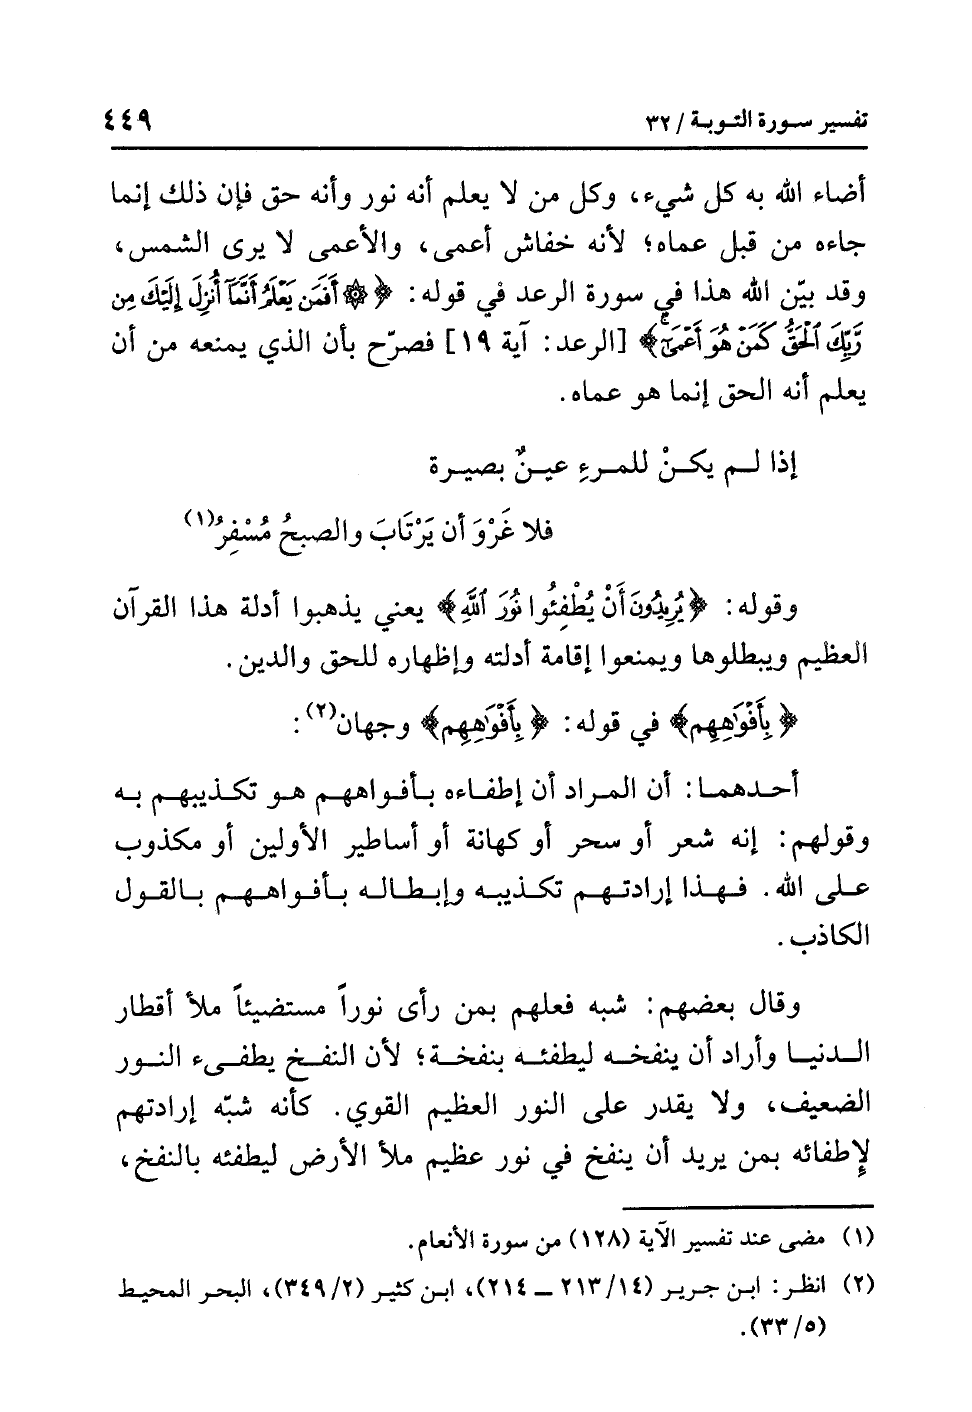 تفسير سورة التوبة / ٣٢
٤٤٩
أضاء الله به كل شيء، وكل من لا يعلم أنه نور وأنه حق فإن ذلك إنما
جاءه من قبل عماه؛ لأنه خفاش أعمى، والأعمى لا يرى الشمس،
وقد بيّن الله هذا في سورة الرعد في قوله: ﴿۞ أَفَمَن يَعْلَمُ أَنَّمَآ أُنزِلَ إِلَيْكَ مِن
رَّبِّكَ ٱلْحَقُّ كَمَنْ هُوَ أَعْمَىٰٓۚ﴾ [الرعد: آية ١٩] فصرّح بأن الذي يمنعه من أن
يعلم أنه الحق إنما هو عماه.
إذا لـم يكـنْ للمـرءِ عيـنٌ بصيرة
فلا غَرْوَ أن يَرْتَابَ والصبحُ مُسْفِرُ(١)
وقوله: ﴿يُرِيدُونَ أَنْ يُطْفِئُوا نُورَ ٱللَّهِ﴾ يعني يذهبوا أدلة هذا القرآن
العظيم ويبطلوها ويمنعوا إقامة أدلته وإظهاره للحق والدين.
﴿بِأَفْوَٰهِهِم﴾ في قوله: ﴿بِأَفْوَٰهِهِم﴾ وجهان(٢):
أحـدهمـا: أن المراد أن إطفـاءه بـأفـواههـم هـو تكـذيبهـم بـه
وقولهم: إنه شعر أو سحر أو كهانة أو أساطير الأولين أو مكذوب
علـى الله. فـهـذا إرادتـهـم تكـذيبـه وإبـطـالـه بـأفـواهـهـم بـالقـول
الكاذب.
وقال بعضهم: شبه فعلهم بمن رأى نوراً مستضيئاً ملأ أقطار
الـدنيـا وأراد أن ينفخـه ليطفئـه بنفخـة؛ لأن النفـخ يطفـيء النـور
الضعيف، ولا يقدر على النور العظيم القوي. كأنه شبّه إرادتهم
لإطفائه بمن يريد أن ينفخ في نور عظيم ملأ الأرض ليطفئه بالنفخ،
(١) مضى عند تفسير الآية (١٢٨) من سورة الأنعام.
(٢) انظر: ابن جرير (١٤/ ٢١٣ ـ ٢١٤)، ابن كثير (٢/ ٣٤٩)، البحر المحيط
(٥/ ٣٣).